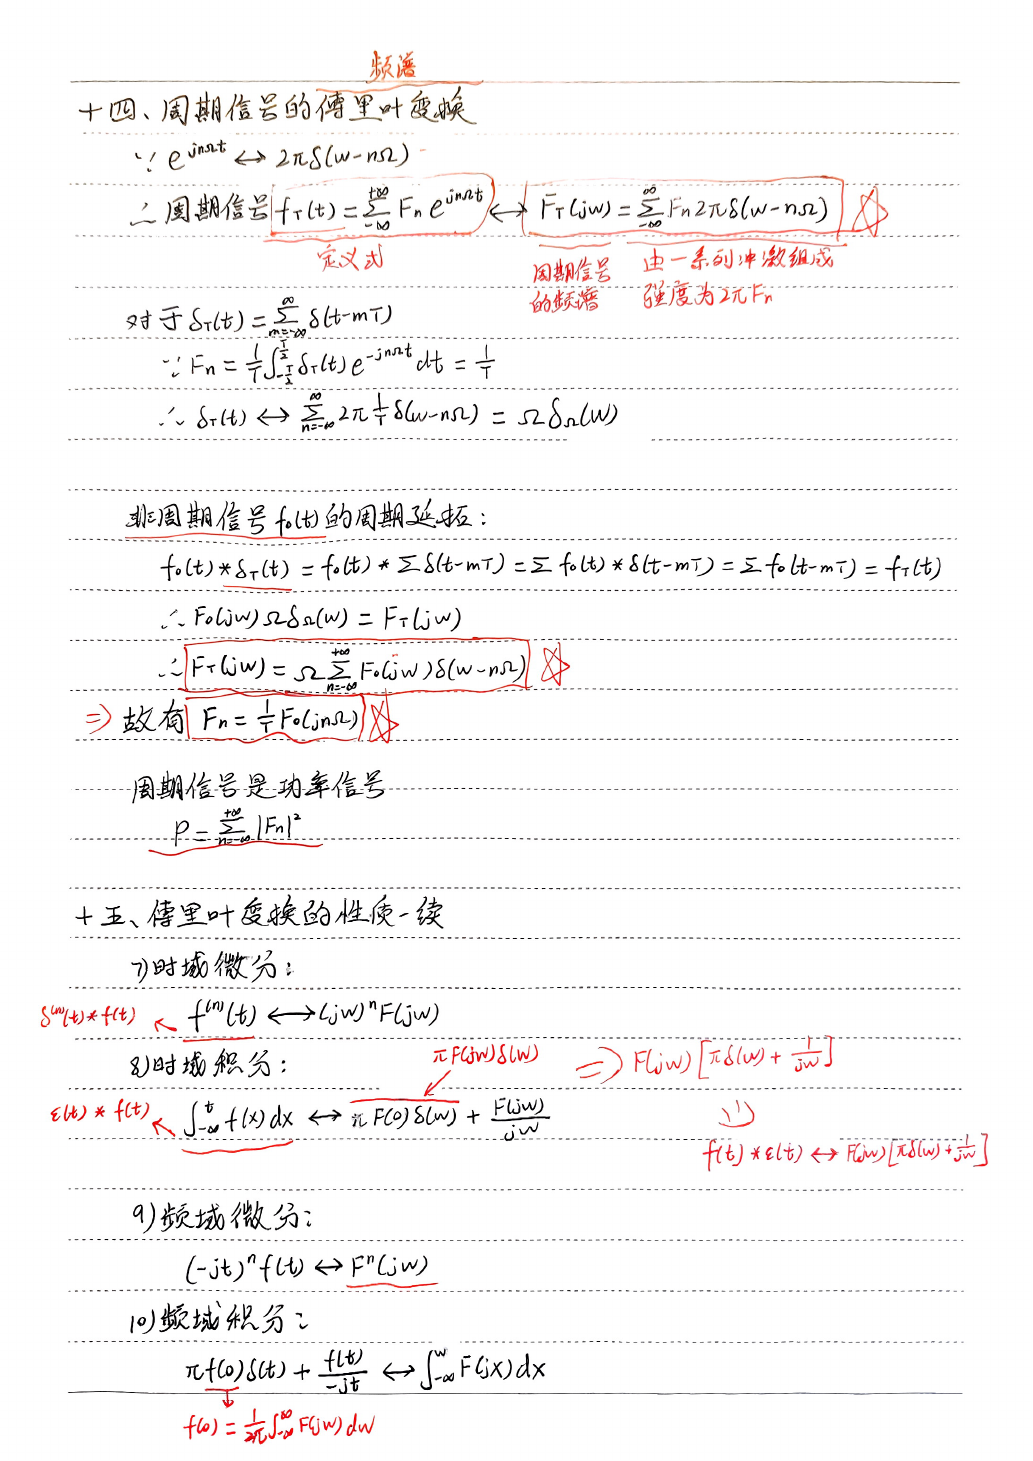 频谱
十四、周期信号的傅里叶变换
∵ e^{jnΩt} ↔ 2πδ(w-nΩ)
∴ 周期信号 f_T(t) = Σ_{-∞}^{+∞} F_n e^{jnΩt} ↔ F_T(jw) = Σ_{-∞}^{∞} F_n 2πδ(w-nΩ) ☆
定义式
周期信号的频谱
由一系列冲激组成
强度为2πF_n
对于 δ_T(t) = Σ_{m=-∞}^{∞} δ(t-mT)
∵ F_n = 1/T ∫_{-T/2}^{T/2} δ_T(t) e^{-jnΩt} dt = 1/T
∴ δ_T(t) ↔ Σ_{n=-∞}^{∞} 2π 1/T δ(w-nΩ) = Ωδ_Ω(w)
非周期信号 f₀(t) 的周期延拓:
f₀(t) * δ_T(t) = f₀(t) * Σ δ(t-mT) = Σ f₀(t) * δ(t-mT) = Σ f₀(t-mT) = f_T(t)
∴ F₀(jw) Ωδ_Ω(w) = F_T(jw)
∴ F_T(jw) = Ω Σ_{n=-∞}^{+∞} F₀(jw) δ(w-nΩ) ☆
⇒ 故有 F_n = 1/T F₀(jnΩ) ☆
周期信号是功率信号
P = Σ_{n=-∞}^{+∞} |F_n|²
十五、傅里叶变换的性质-续
7) 时域微分:
δ^{(n)}(t) * f(t) ↖ f^{(n)}(t) ↔ (jw)^n F(jw)
8) 时域积分:
πF(jw)δ(w) ⇒ F(jw)[πδ(w) + 1/jw]
ε(t) * f(t) ↖ ∫_{-∞}^{t} f(x)dx ↔ πF(0)δ(w) + F(jw)/jw
f(t) * ε(t) ↔ F(jw)[πδ(w) + 1/jw]
9) 频域微分:
(-jt)^n f(t) ↔ F^n(jw)
10) 频域积分:
πf(0)δ(t) + f(t)/-jt ↔ ∫_{-∞}^{w} F(jx)dx
f(0) = 1/2π ∫_{-∞}^{∞} F(jw)dw